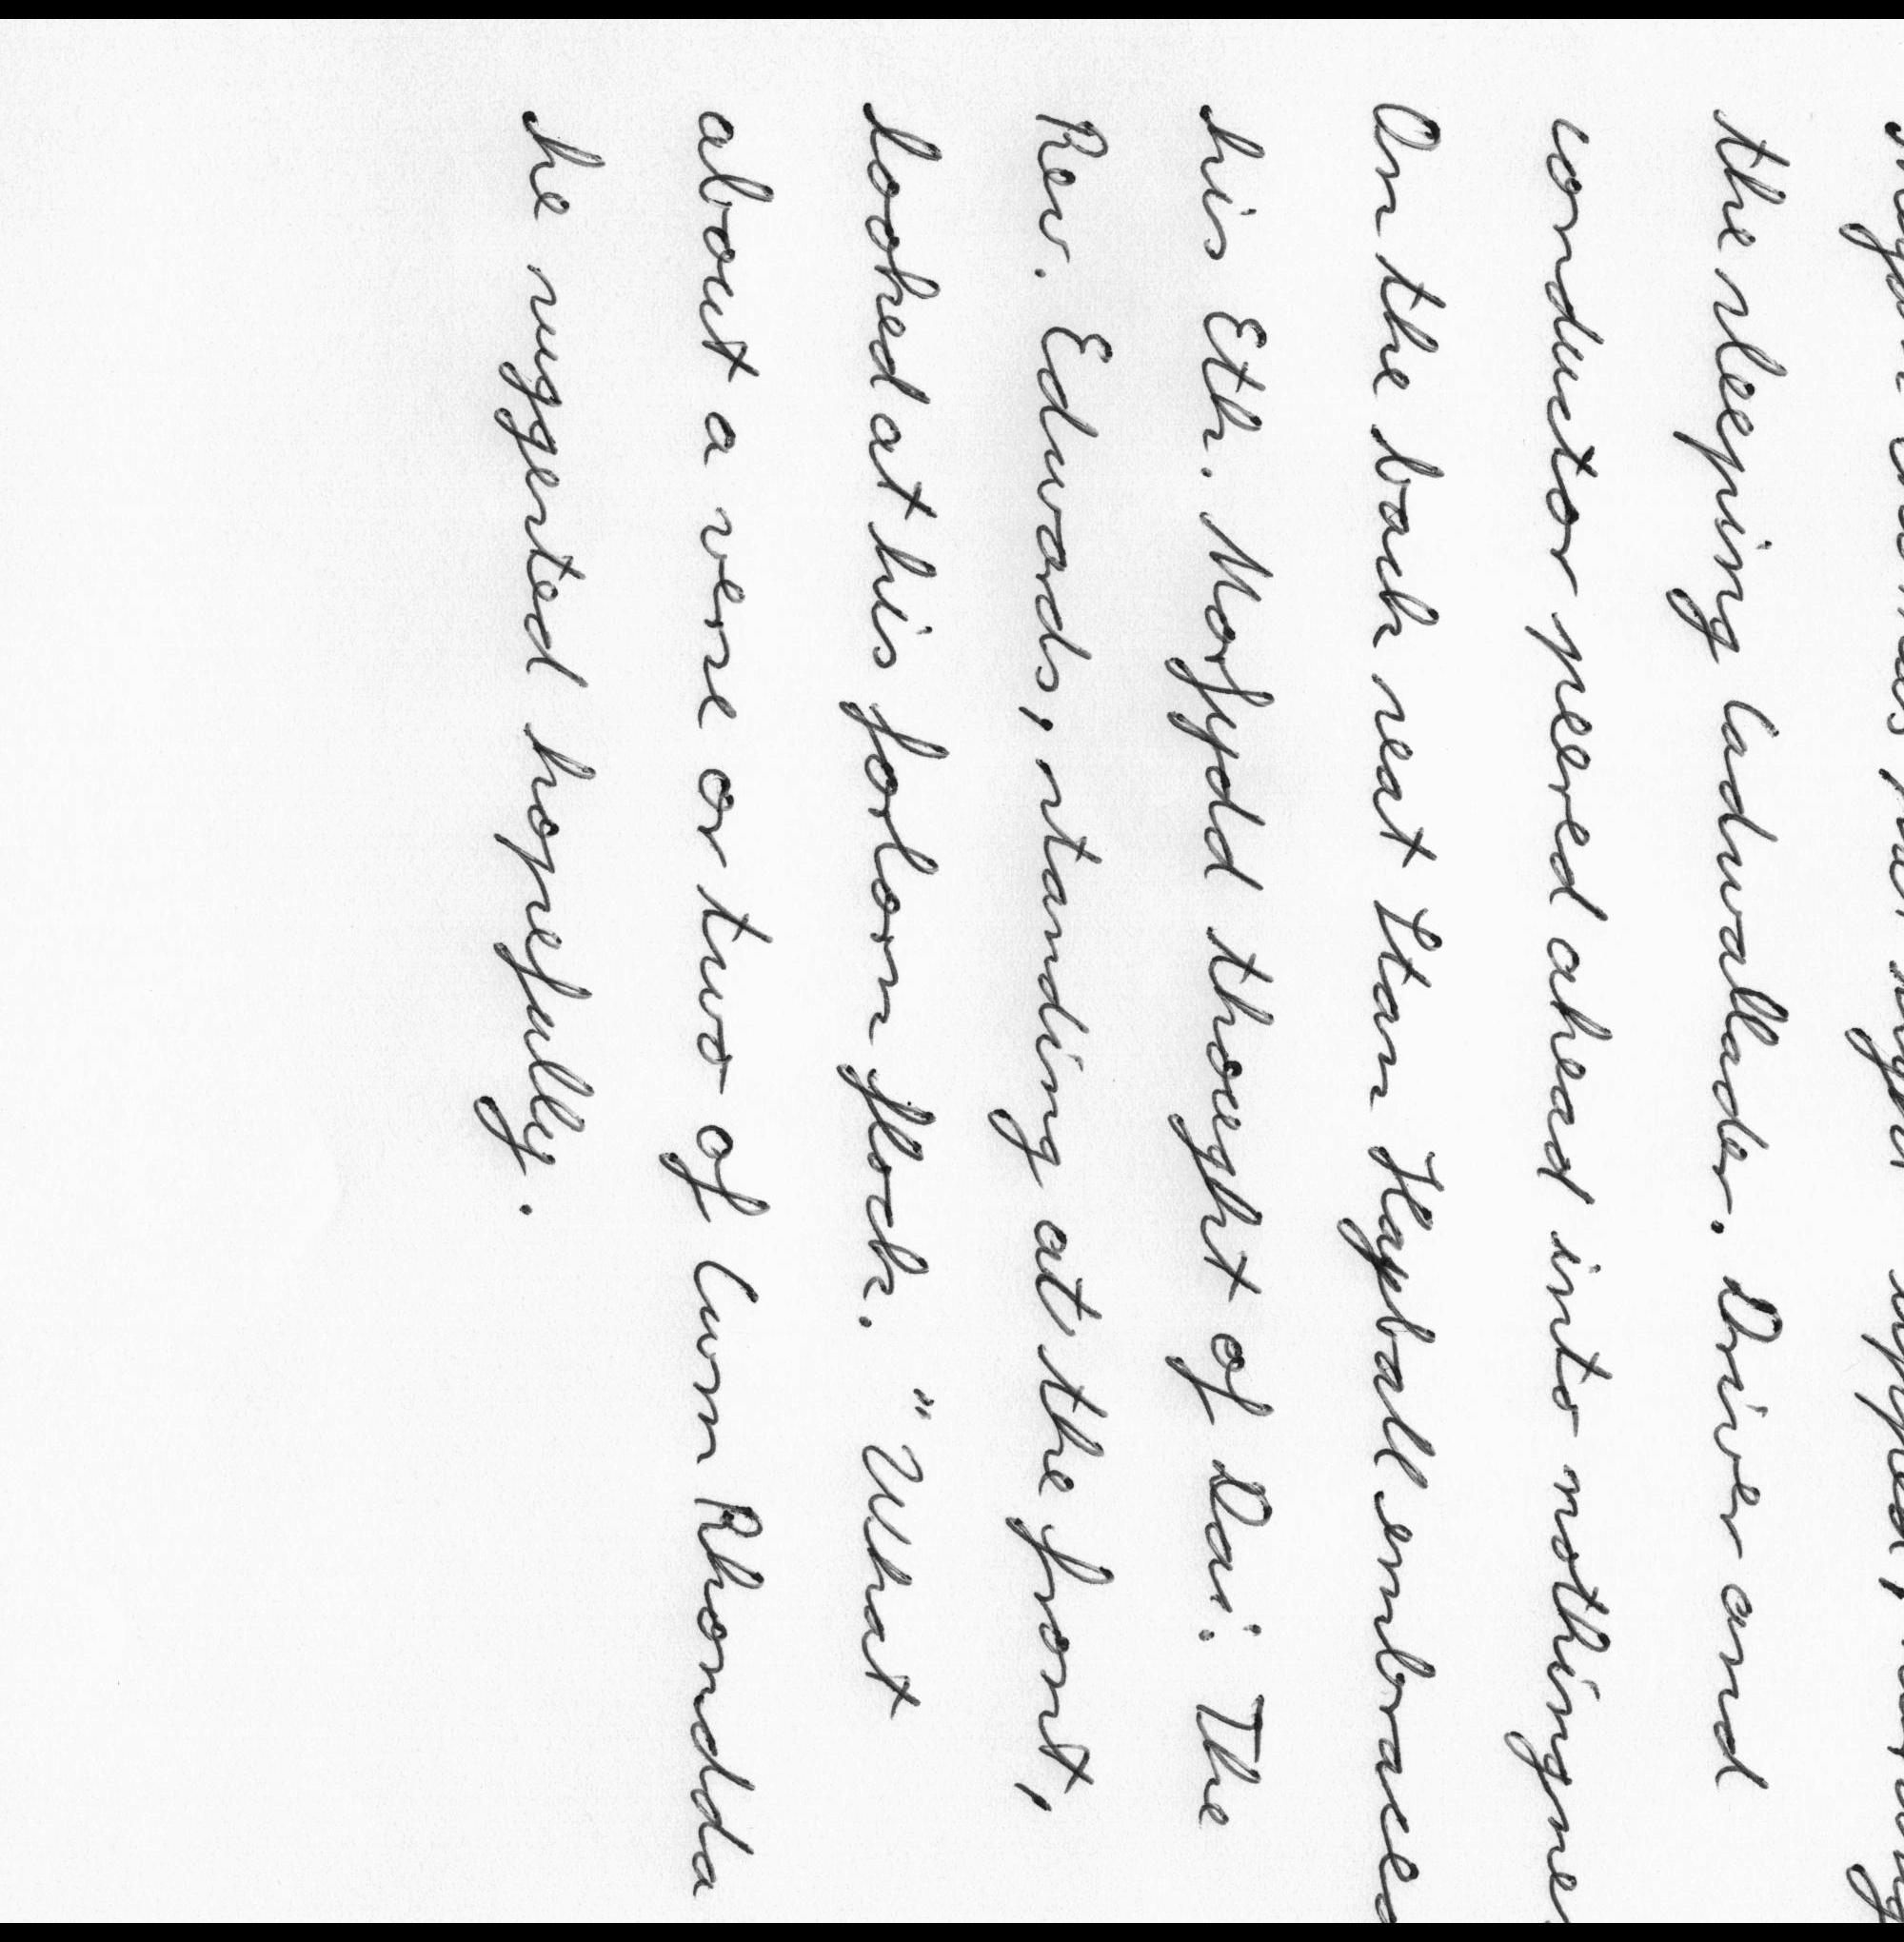 the sleeping Cadwallader. Driver and
conductor peered ahead into
On the back seat Stan Hayball embraced
his Eth. Morfydd thought of Dai. The
Rev. Edwards, standing at the front,
looked at his forlorn flock. "What
about a verse or two of Cwm Rhondda
he suggested hopefully.